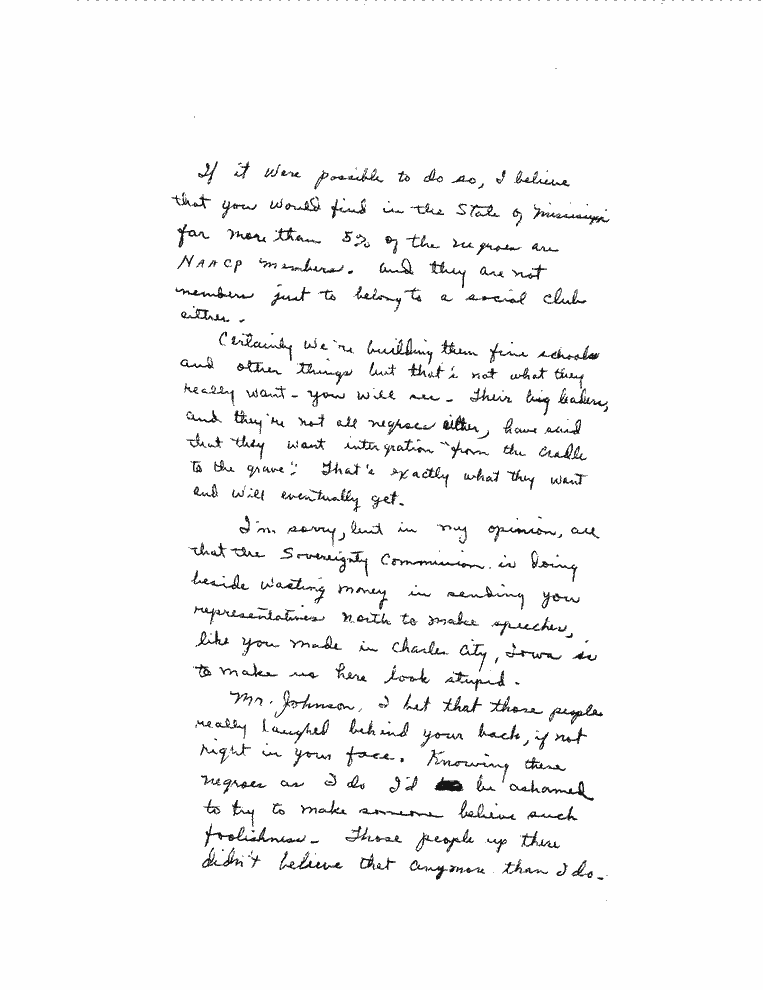 If it were possible to do so, I believe
that you would find in the State of Mississippi
far more than 5% of the negroes are
NAACP members. And they are not
members just to belong to a social club
either.
Certainly we're building them fine schools
and other things but that's not what they
really want - you will see - Their big leaders,
and they're not all negroes either, have said
that they want intergration "from the cradle
to the grave". That's exactly what they want
and will eventually get.
I'm sorry, but in my opinion, all
that the Sovereignty Commission is doing
beside wasting money in sending you
representatives north to make speeches,
like you made in Charles City, Iowa is
to make us here look stupid.
Mr. Johnson, I bet that those people
really laughed behind your back, if not
right in your face. Knowing these
negroes as I do I'd be ashamed
to try to make someone believe such
foolishness - Those people up there
didn't believe that anymore than I do -